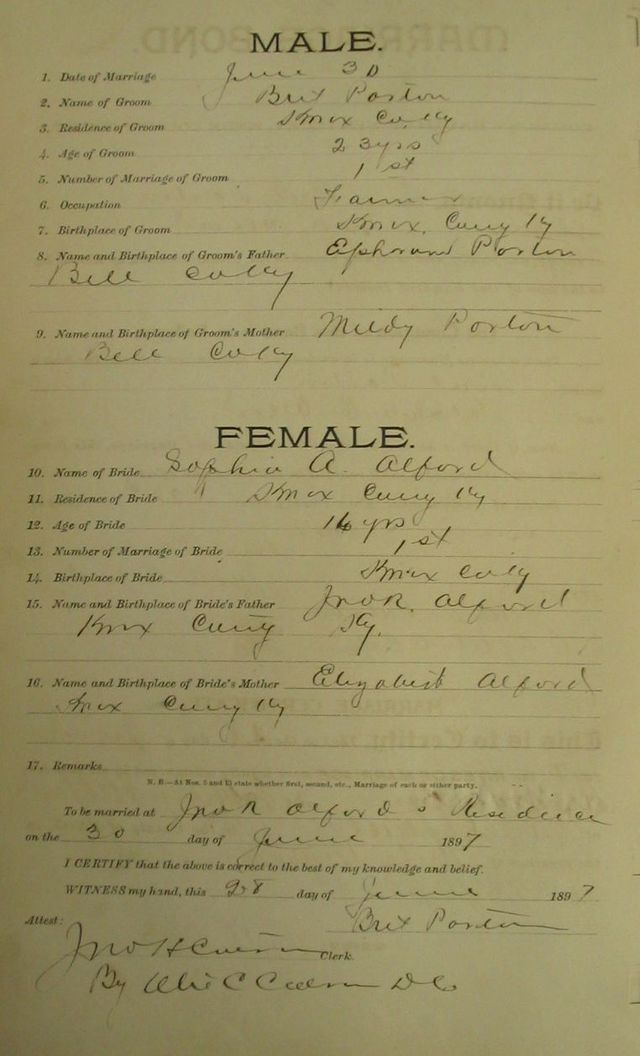 MALE.
1. Date of Marriage June 30
2. Name of Groom Brit Poston
3. Residence of Groom Knox Co Ky
4. Age of Groom 23 yrs
5. Number of Marriage of Groom 1st
6. Occupation Farmer
7. Birthplace of Groom Knox County Ky
8. Name and Birthplace of Groom's Father Ephoram Poston
Bell Co Ky
9. Name and Birthplace of Groom's Mother Mildy Poston
Bell Co Ky
FEMALE.
10. Name of Bride Sophia A. Alford
11. Residence of Bride Knox County Ky
12. Age of Bride 16 yrs
13. Number of Marriage of Bride 1st
14. Birthplace of Bride Knox Co Ky
15. Name and Birthplace of Bride's Father Jno R. Alford
Knox County Ky.
16. Name and Birthplace of Bride's Mother Elizabeth Alford
Knox County Ky
17. Remarks
N. B.—At Nos. 5 and 13 state whether first, second, etc., Marriage of each or either party.
To be married at Jno R Alford's Residence
on the 30 day of June 1897
I CERTIFY that the above is correct to the best of my knowledge and belief.
WITNESS my hand, this 28 day of June 1897
Brit Poston
Attest:
Jno H Clerk.
By C D C